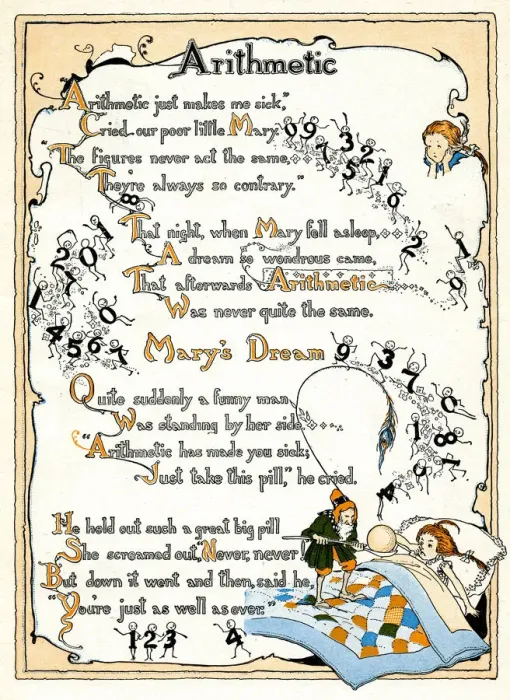 Arithmetic
"Arithmetic just makes me sick,"
Cried our poor little Mary.
"The figures never act the same,
They're always so contrary."
That night, when Mary fell asleep,
A dream so wondrous came,
That afterwards Arithmetic
Was never quite the same.
Mary's Dream
Quite suddenly a funny man
Was standing by her side.
"Arithmetic has made you sick;
Just take this pill," he cried.
He held out such a great big pill
She screamed out, "Never, never"
But down it went and then, said he,
"You're just as well as ever."
1 2 3 4